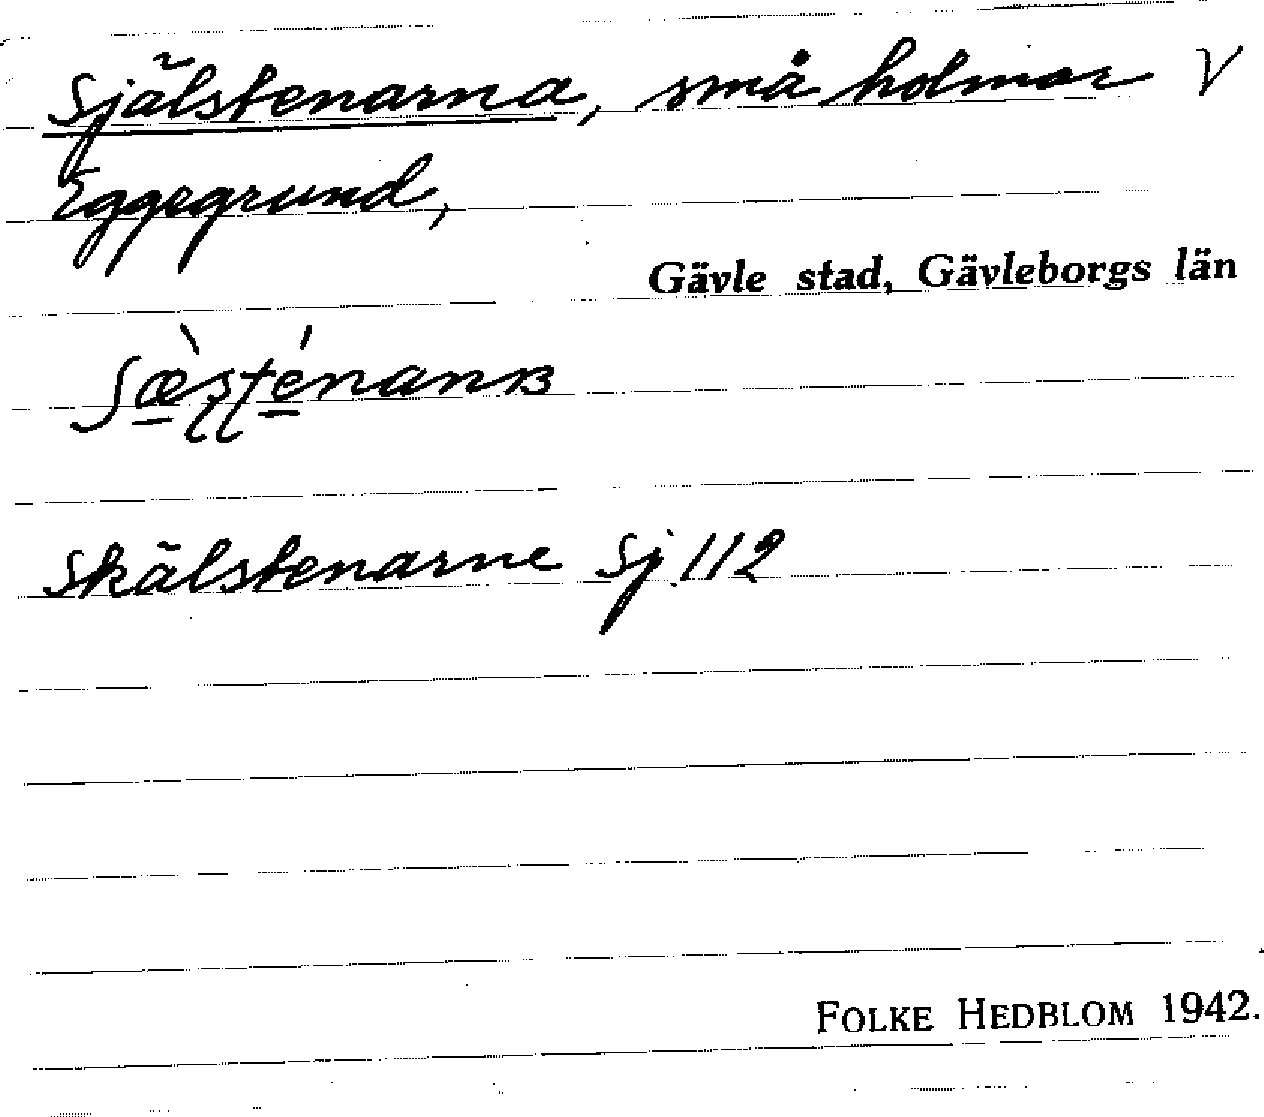 Själstenarna, små holmar V
Eggegrund,
Gävle stad, Gävleborgs län
Skälstenarne Sj. 112
FOLKE HEDBLOM 1942.